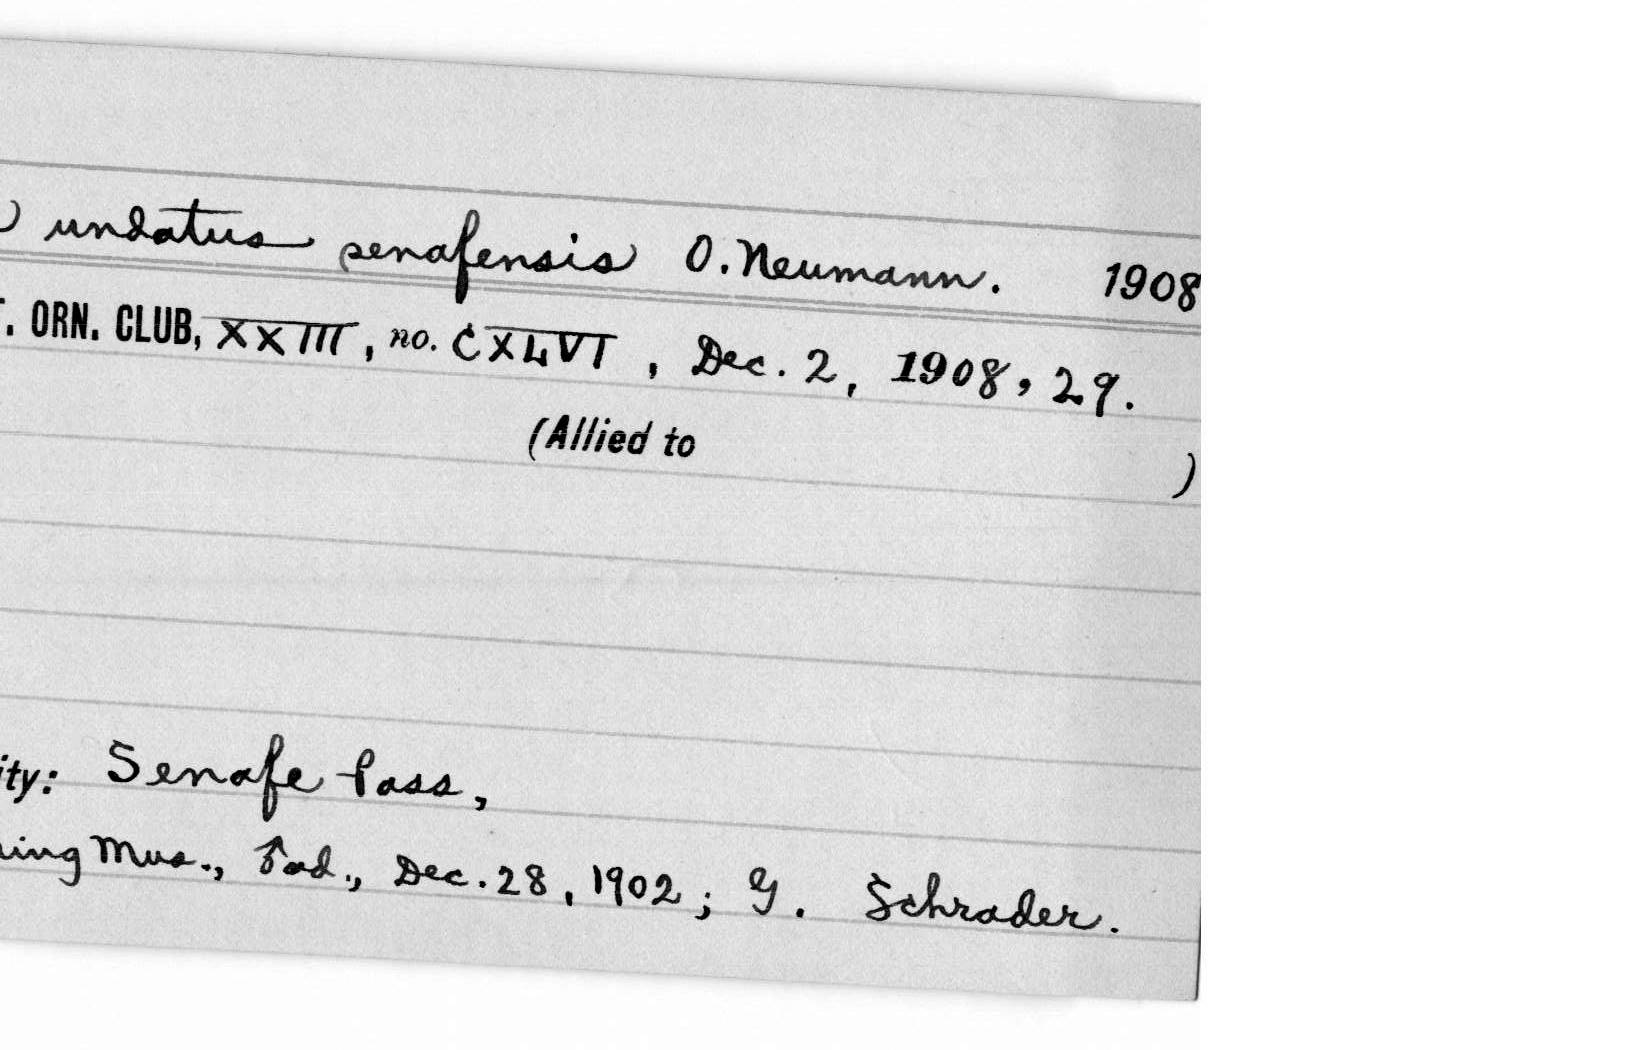 undatus senafensis O. Neumann. 1908
. ORN. CLUB, XXIII, no. CXLVI, Dec. 2, 1908, 29.
(Allied to )
ity: Senafe Pass,
ring Mus., ad., Dec. 28, 1902; G. Schrader.